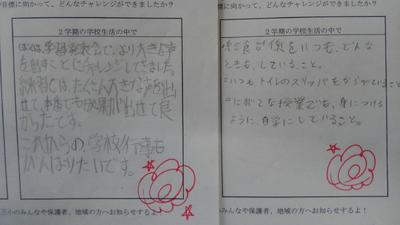 目標に向かって、どんなチャレンジができましたか?
2学期の学校生活の中で
ぼくは学習発表会で、より大きな声
を出すことにチャレンジしてきました。
練習では、たくさん大きな声を出
せて、本番でも成果が出せて良
かったです。
これからの学校行事も
がんばりたいです。
三小のみんなや保護者、地域の方へお知らせするよ
に向かって、どんなチャレンジができましたか?
2学期の学校生活の中で
給食当係をいつも、どんな
ときも、していること。
いつもトイレのスリッパをならべていること
にがてな授業でも、身につける
ように自学にしていること。
のみんなや保護者、地域の方へお知らせするよ!